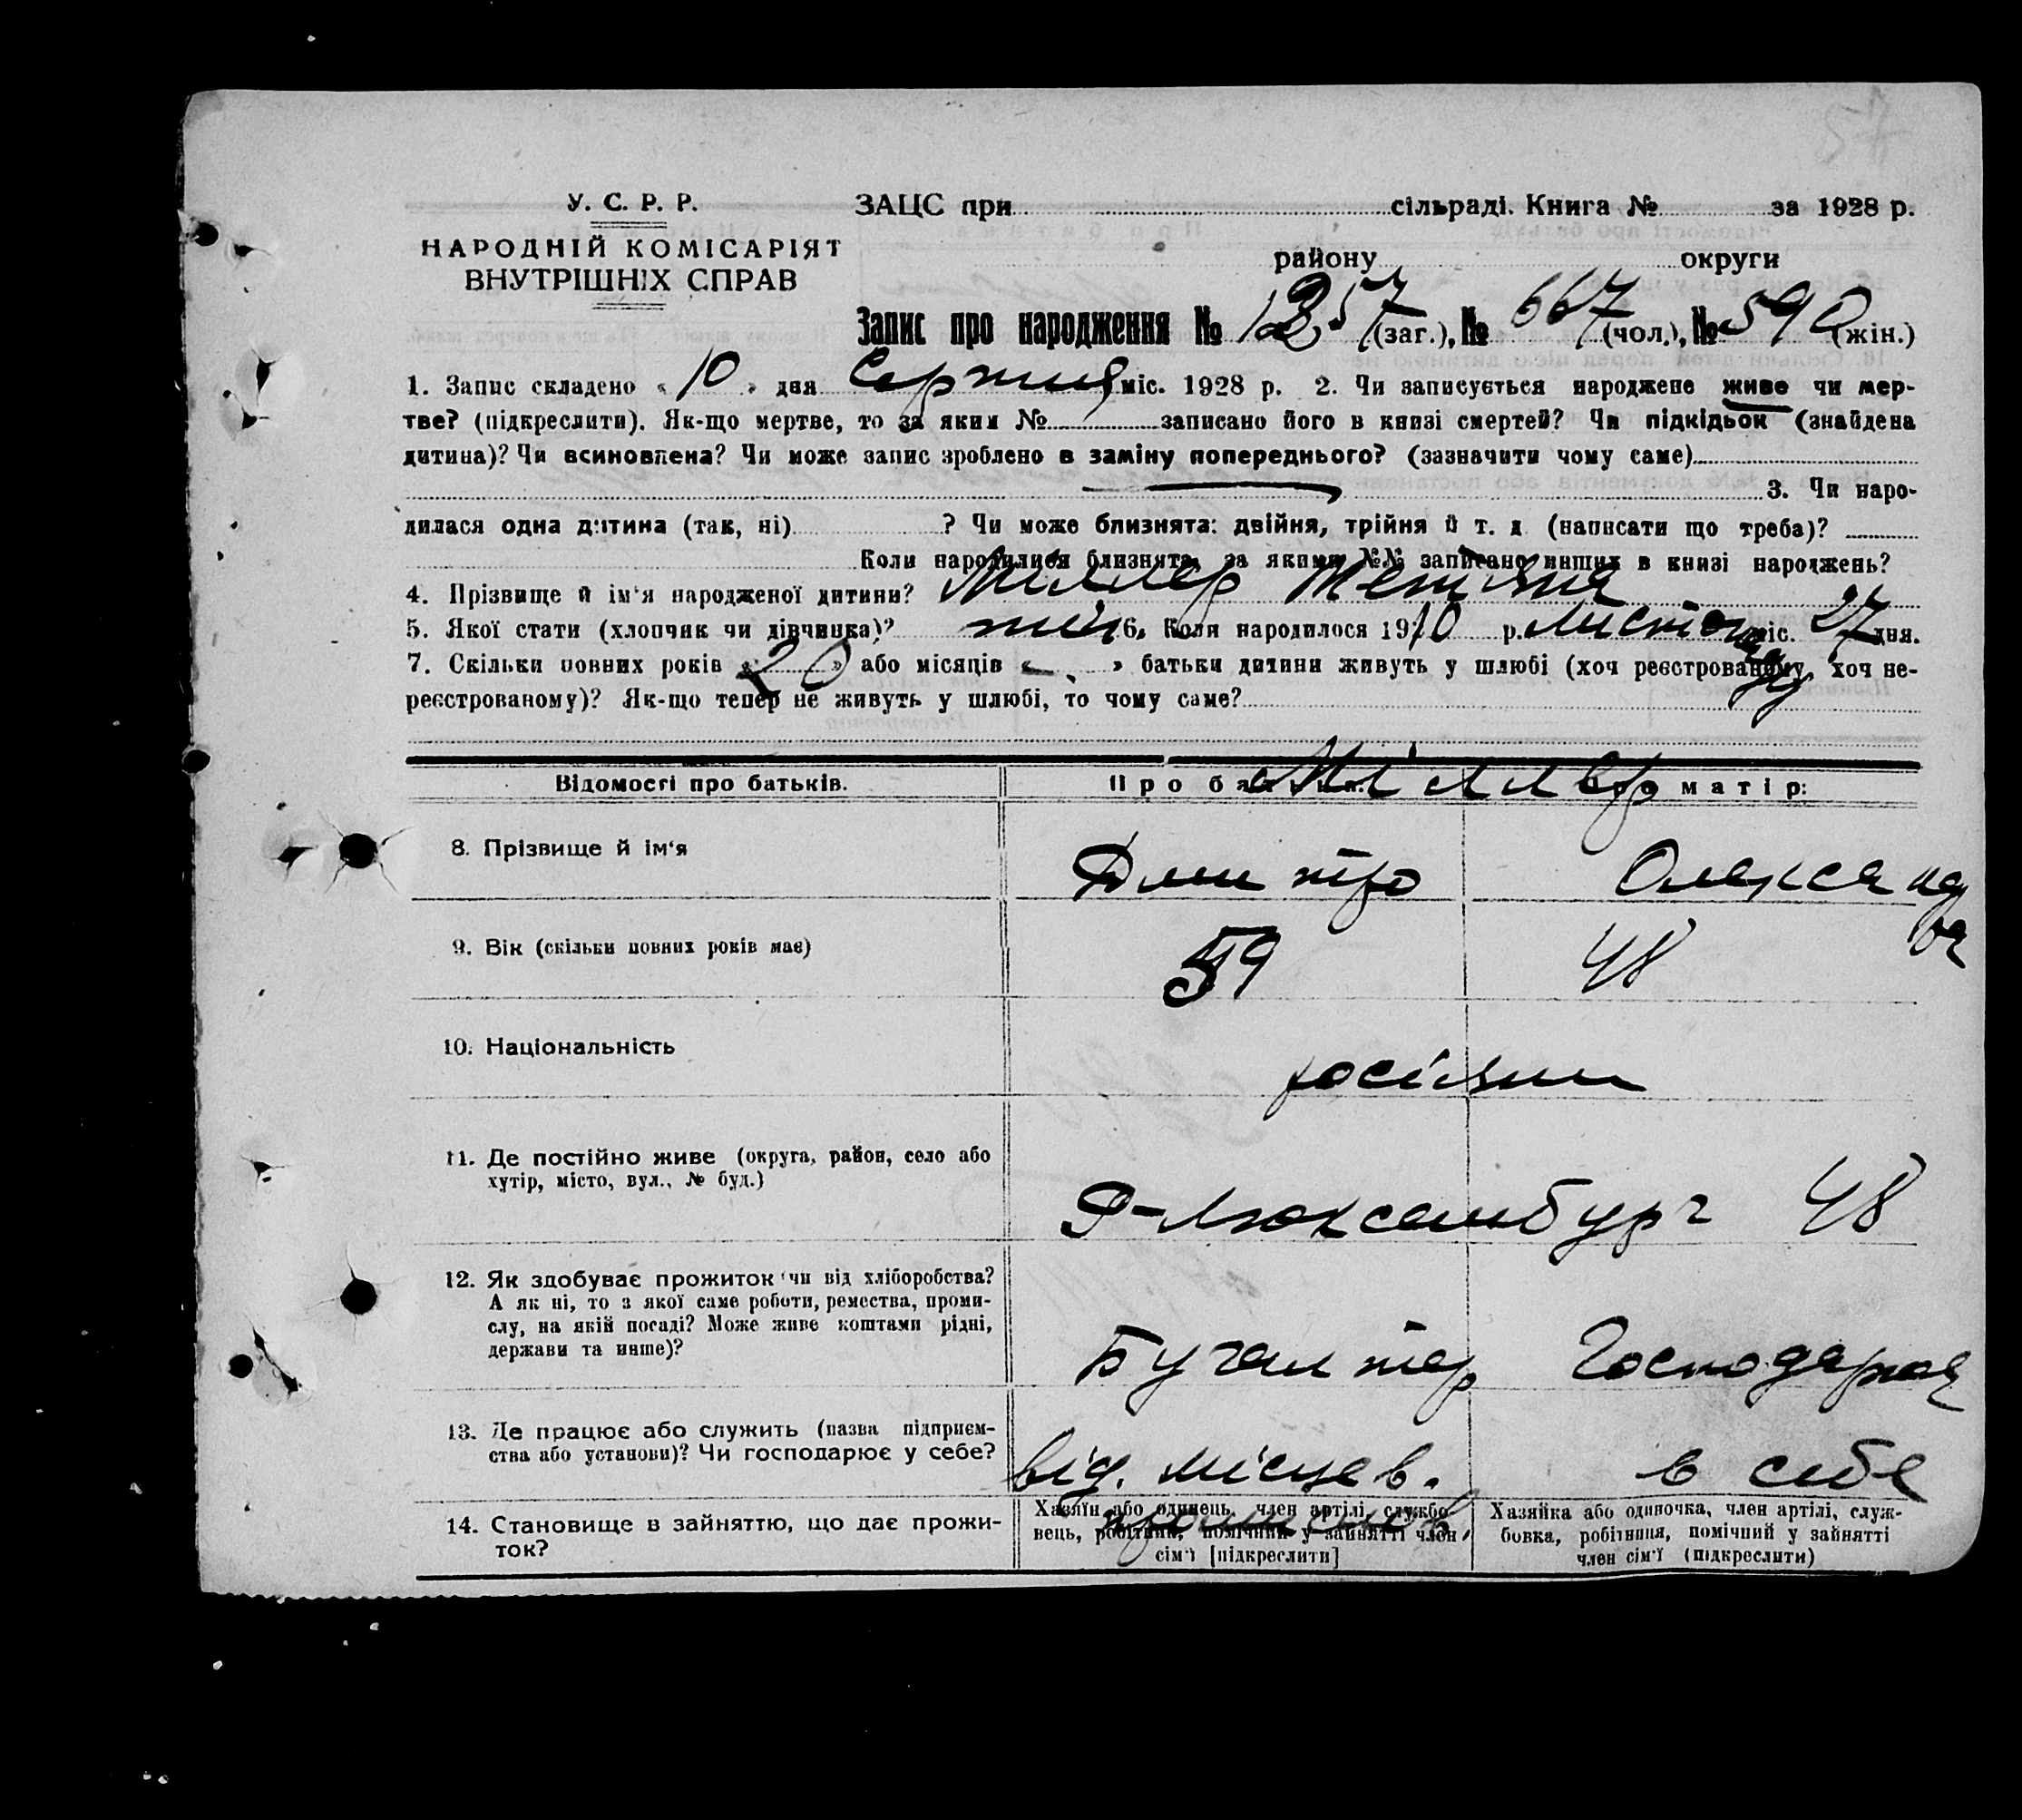 У. С. Р. Р.
НАРОДНІЙ КОМІСАРІЯТ
ВНУТРІШНІХ СПРАВ
ЗАЦС при сільраді. Книга № за 1928 р.
району округи
Запис про народження № 1257 (заг.), № 667 (чол.), № 590 (жін.)
1. Запис складено « 10 » дня Серпня міс. 1928 р. 2. Чи записується народжене живе чи мер-
тве? (підкреслити). Як-що мертве, то за яким № записано його в книзі смертей? Чи підкідьок (знайдена
дитина)? Чи всиновлена? Чи може запис зроблено в заміну попереднього? (зазначити чому саме)
3. Чи наро-
дилася одна дитина (так, ні) ? Чи може близнята: двійня, трійня й т. д (написати що треба)?
Коли народилися близнята, за якими №№ записано инших в книзі народжень?
4. Прізвище й ім'я народженої дитини? Миллер Тетяна
5. Якої стати (хлопчик чи дівчинка)? 6. Коли народилося 1910 р. Листопаду міс. 27 дня.
7. Скільки повних років « 20 » або місяців « - » батьки дитини живуть у шлюбі (хоч реєстрованому, хоч не-
реєстрованому)? Як-що тепер не живуть у шлюбі, то чому саме?
Відомості про батьків. Про батька: матір:
Міллер
8. Прізвище й ім'я Дмитро Олександра
9. Вік (скільки повних років має) 59 48
10. Національність росіяни
11. Де постійно живе (округа, район, село або
хутір, місто, вул., № буд.)
Р-Люксембург 48
12. Як здобуває прожиток чи від хліборобства?
А як ні, то з якої саме роботи, ремества, проми-
слу, на якій посаді? Може живе коштами рідні,
держави та инше)?
Бугалтер Господарює
13. Де працює або служить (назва підприєм-
ства або установи)? Чи господарює у себе?
від. місцев. в себе
14. Становище в зайняттю, що дає прожи-
ток?
Хазяїн або одинець, член артілі, службо-
вець, робітник, помічний у зайнятті член
сім'ї [підкреслити]
Хазяйка або одиночка, член артілі, служ-
бовка, робітниця, помічний у зайнятті
член сім'ї (підкреслити)